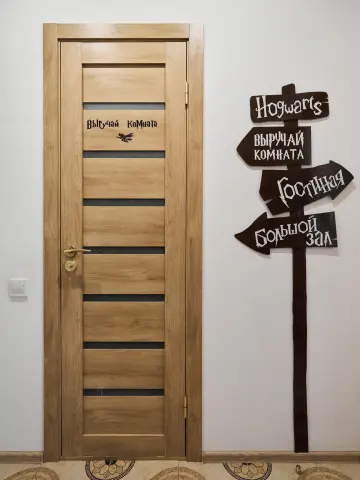 Выручай комната
Hogwarts
Выручай
комната
Гостиная
Большой
зал